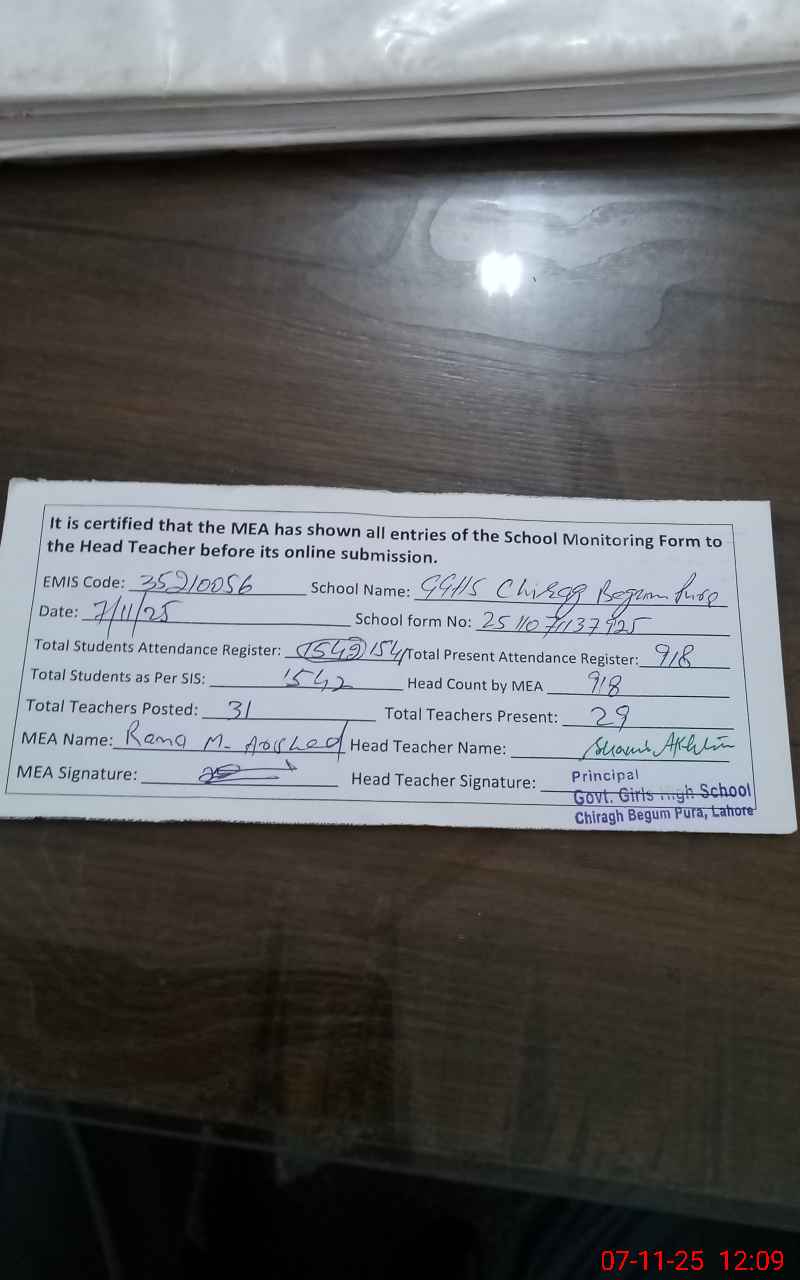 It is certified that the MEA has shown all entries of the School Monitoring Form to
the Head Teacher before its online submission.
EMIS Code: 35210056 School Name: GGHS Chiragh Begum Pura
Date: 7/11/25 School form No: 2511071137925
Total Students Attendance Register: 1542 154 Total Present Attendance Register: 918
Total Students as Per SIS: 1542 Head Count by MEA 918
Total Teachers Posted: 31 Total Teachers Present: 29
MEA Name: Rana M. Arshed Head Teacher Name: Shamis Akhtar
MEA Signature: Head Teacher Signature:
Principal
Govt. Girls High School
Chiragh Begum Pura, Lahore
07-11-25 12:09